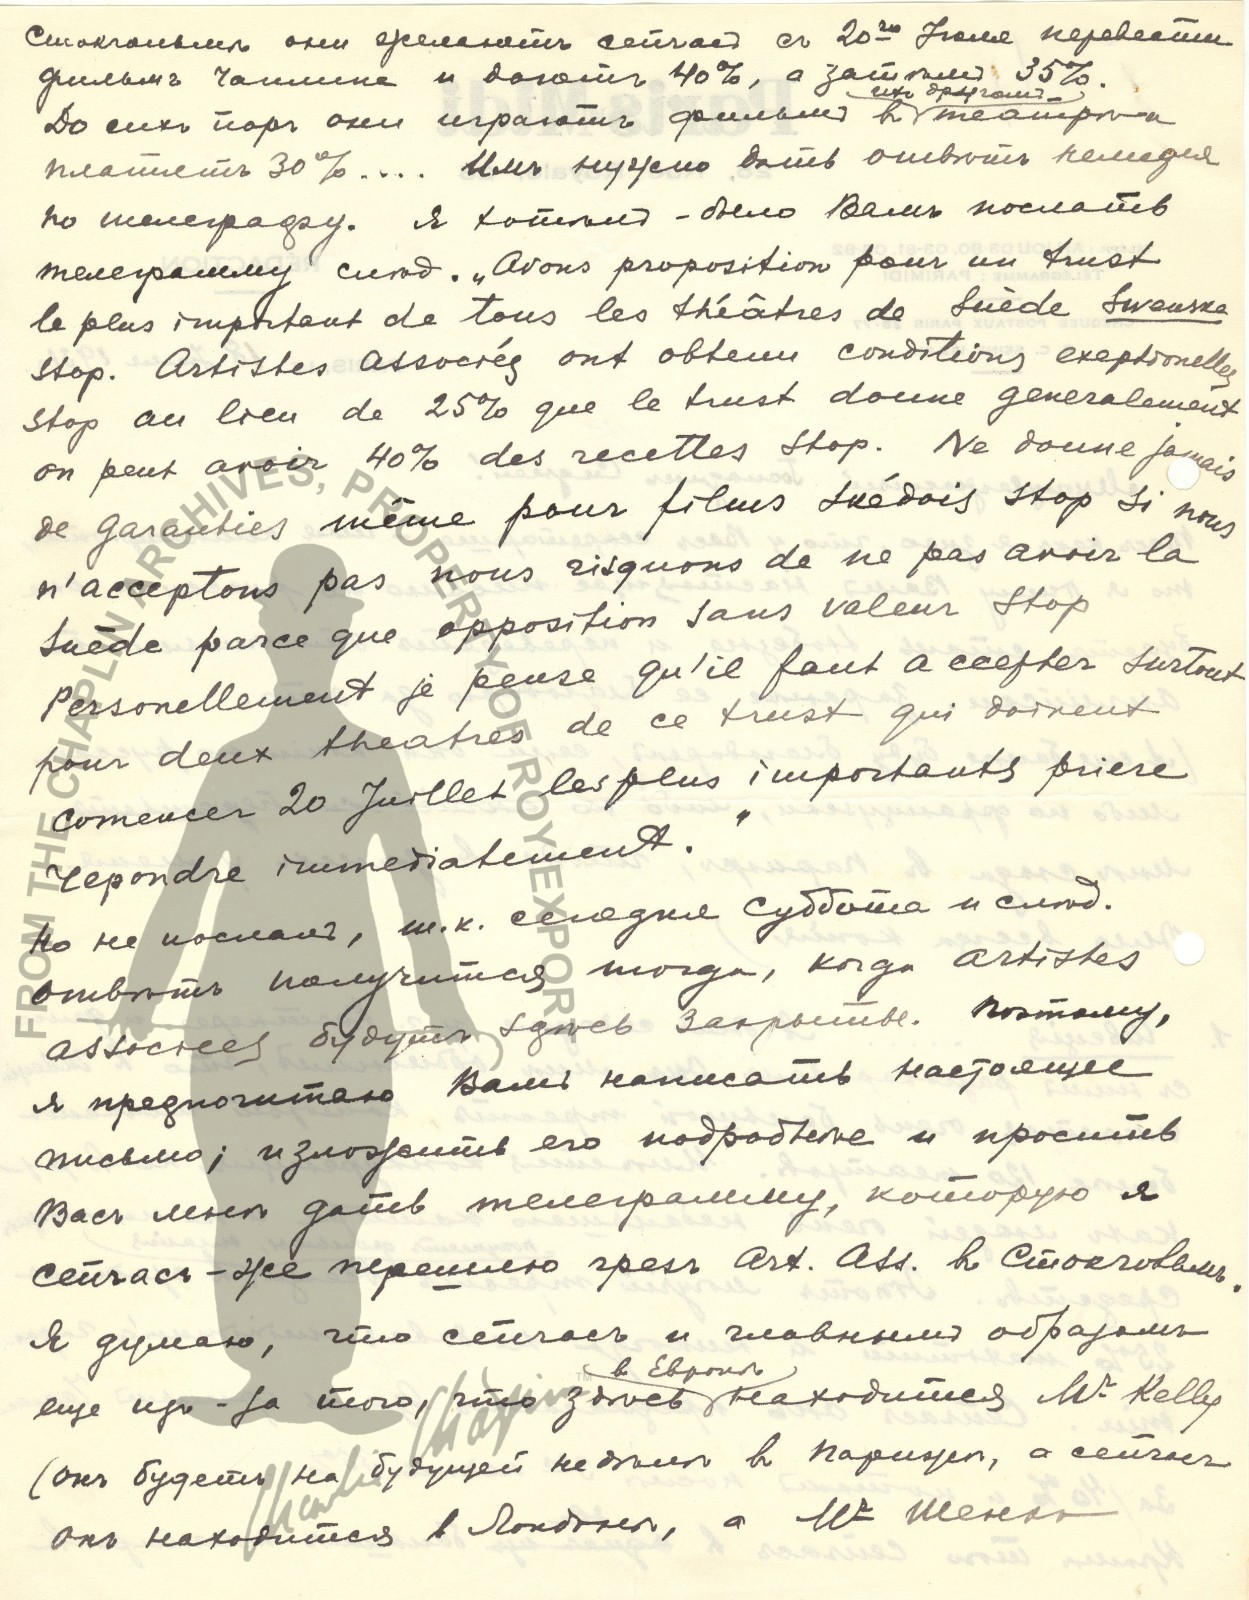 Стокгольмѣ они желаютъ сейчас съ 20го Іюля перевести
фильмъ Чаплина и даютъ 40%, а затѣмъ 35%.
ихъ другомъ
До сихъ поръ они играютъ фильмъ в театрѣ и
платятъ 30%.... Имъ нужно дать отвѣтъ немедля
по телеграфу. Я хотѣлъ-было Вамъ послать
телеграмму слѣд. „Avons proposition pour un trust
le plus important de tous les théâtres de Suède Swenska
stop. Artistes Associés ont obtenu conditions exeptionelles
stop au lieu de 25% que le trust donne generalement
on peut avoir 40% des recettes stop. Ne donne jamais
de garanties même pour films suédois stop si nous
n'acceptons pas nous risquons de ne pas avoir la
Suède parce que opposition sans valeur stop
Personellement je pense qu'il faut accepter surtout
pour deux theatres de ce trust qui doivent
comencer 20 Juillet les plus importants priere
repondre immediatement."
Но не послалъ, т.к. сегодня суббота и слѣд.
отвѣтъ получится тогда, когда Artistes
Associés будутъ здѣсь закрыты. Поэтому,
я предпочитаю Вамъ написать настоящее
письмо; изложить его подробнѣе и просить
Васъ мнѣ дать телеграмму, которую я
сейчасъ-же перешлю чрезъ Art. Ass. в Стокгольмъ.
Я думаю, что сейчасъ и главнымъ образомъ
в Европѣ
еще изъ-за того, что здѣсь находится Mr Kelly
(онъ будетъ на будущей недѣлѣ в Парижѣ, а сейчас
онъ находится в Лондонѣ, а Mr Шенкъ
FROM THE CHAPLIN ARCHIVES, PROPERTY OF ROY EXPORT
Charlie Chaplin
TM